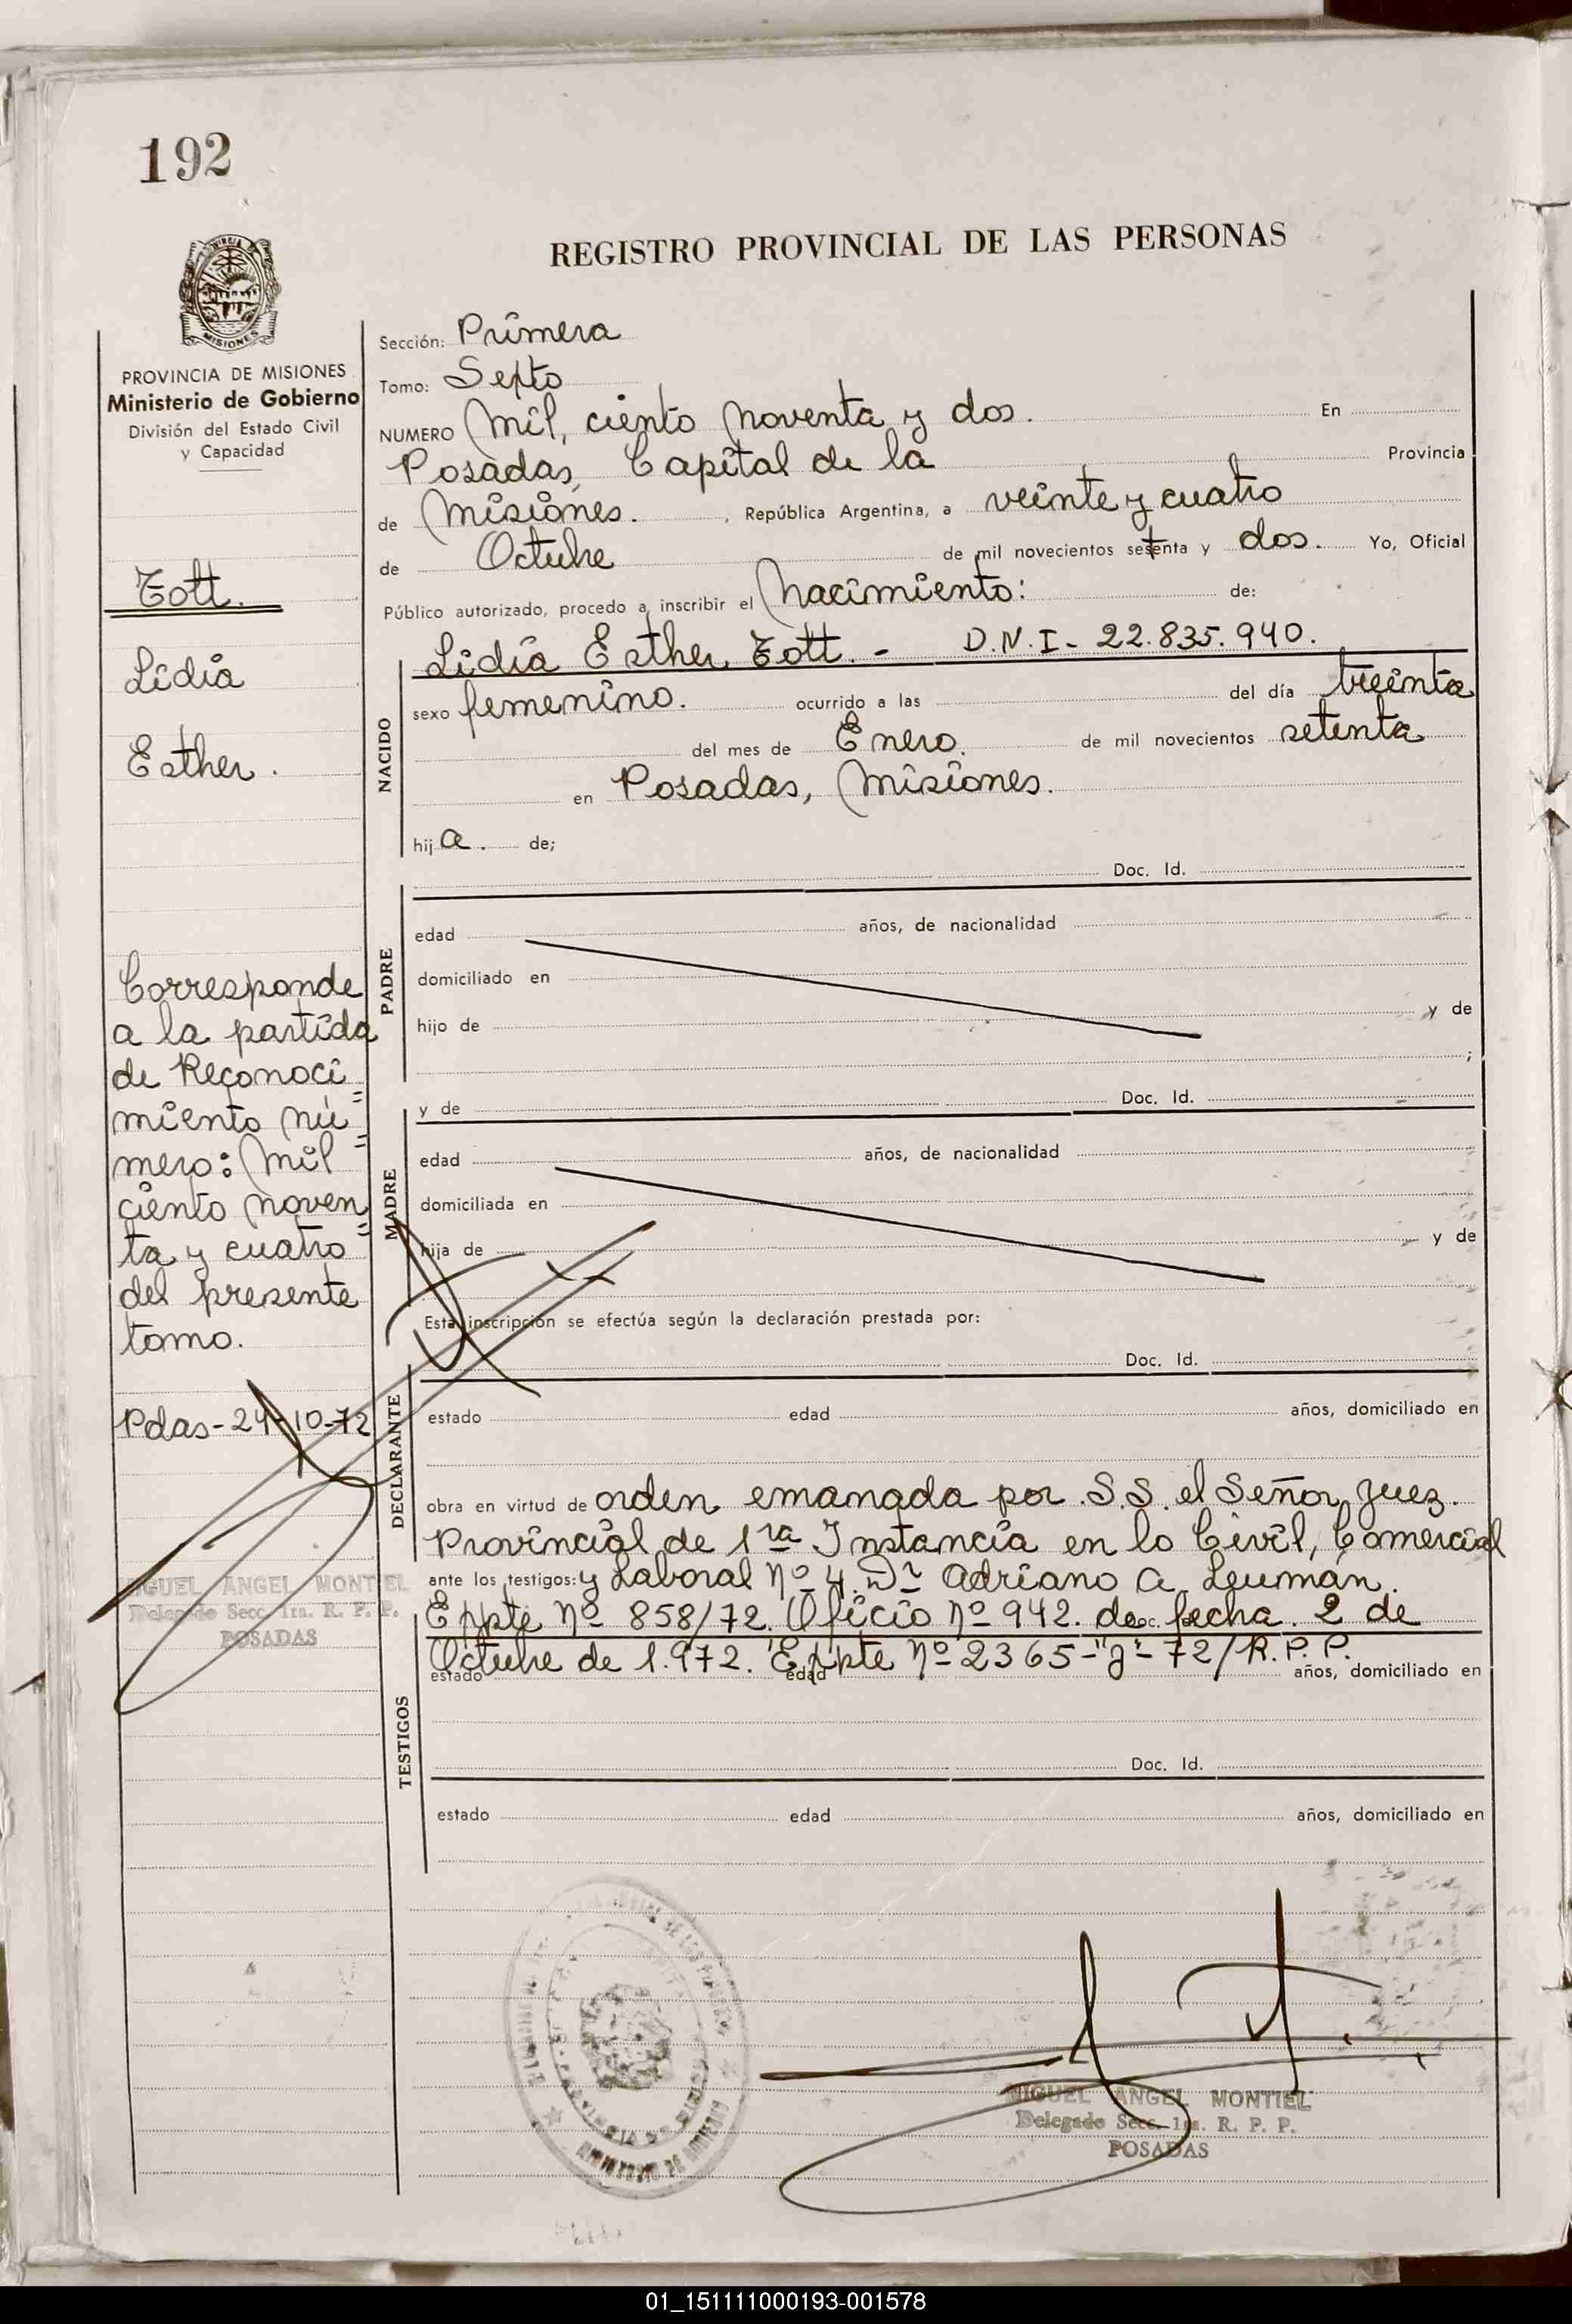 192
REGISTRO PROVINCIAL DE LAS PERSONAS
MISIONES
PROVINCIA DE MISIONES
Ministerio de Gobierno
División del Estado Civil
y Capacidad
Tott.
Lidia
Esther.
Corresponde
a la partida
de Reconoci
miento nú
mero: Mil
ciento noven
ta y cuatro
del presente
tomo.
Pdas-24-10-72
MIGUEL ANGEL MONTIEL
Delegado Secc. 1ra. R. P. P.
POSADAS
Sección: Primera
Tomo: Sexto
NUMERO Mil, ciento noventa y dos. En
Posadas, Capital de la Provincia
de Misiones. , República Argentina, a veinte y cuatro
de Octubre de mil novecientos setenta y dos. Yo, Oficial
Público autorizado, procedo a inscribir el Nacimiento: de:
Lidia Esther Tott. - D.N.I- 22.835.940.
NACIDO
sexo femenino. ocurrido a las del día treinta
del mes de Enero. de mil novecientos setenta
en Posadas, Misiones.
hija. de;
Doc. Id.
PADRE
edad años, de nacionalidad
domiciliado en
hijo de y de
;
y de Doc. Id.
MADRE
edad años, de nacionalidad
domiciliada en
hija de y de
Esta inscripción se efectúa según la declaración prestada por:
Doc. Id.
DECLARANTE
estado edad años, domiciliado en
obra en virtud de orden emanada por S.S. el Señor Juez.
Provincial de 1ra Instancia en lo Civil, Comercial
ante los testigos: y Laboral Nº 4. Dr Adriano A.
Expte Nº 858/72. Oficio Nº 942. de fecha 2 de
Octubre de 1.972. Expte Nº 2365-"J"-72/R.P.P.
estado edad años, domiciliado en
TESTIGOS
Doc. Id.
estado edad años, domiciliado en
MIGUEL ANGEL MONTIEL
Delegado Secc. 1ra. R. P. P.
POSADAS
01_151111000193-001578